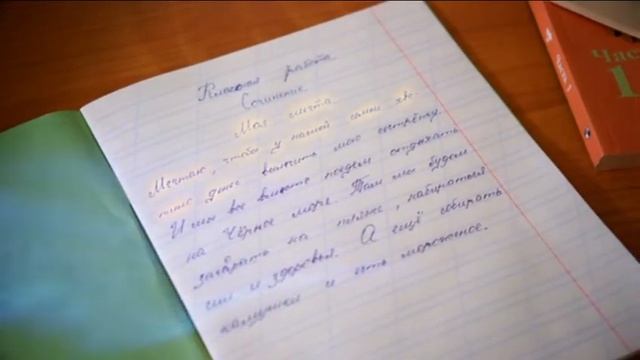 Классная работа
Сочинение
Моя мечта
Мечтаю, чтобы у нашей семьи хва-
тило денег вылечить мою сестрёнку.
И мы все вместе поедем отдыхать
на Чёрное море. Там мы будем
загорать на пляже, набираться
сил и здоровья. А ещё собирать
камушки и есть мороженое.
Час
1